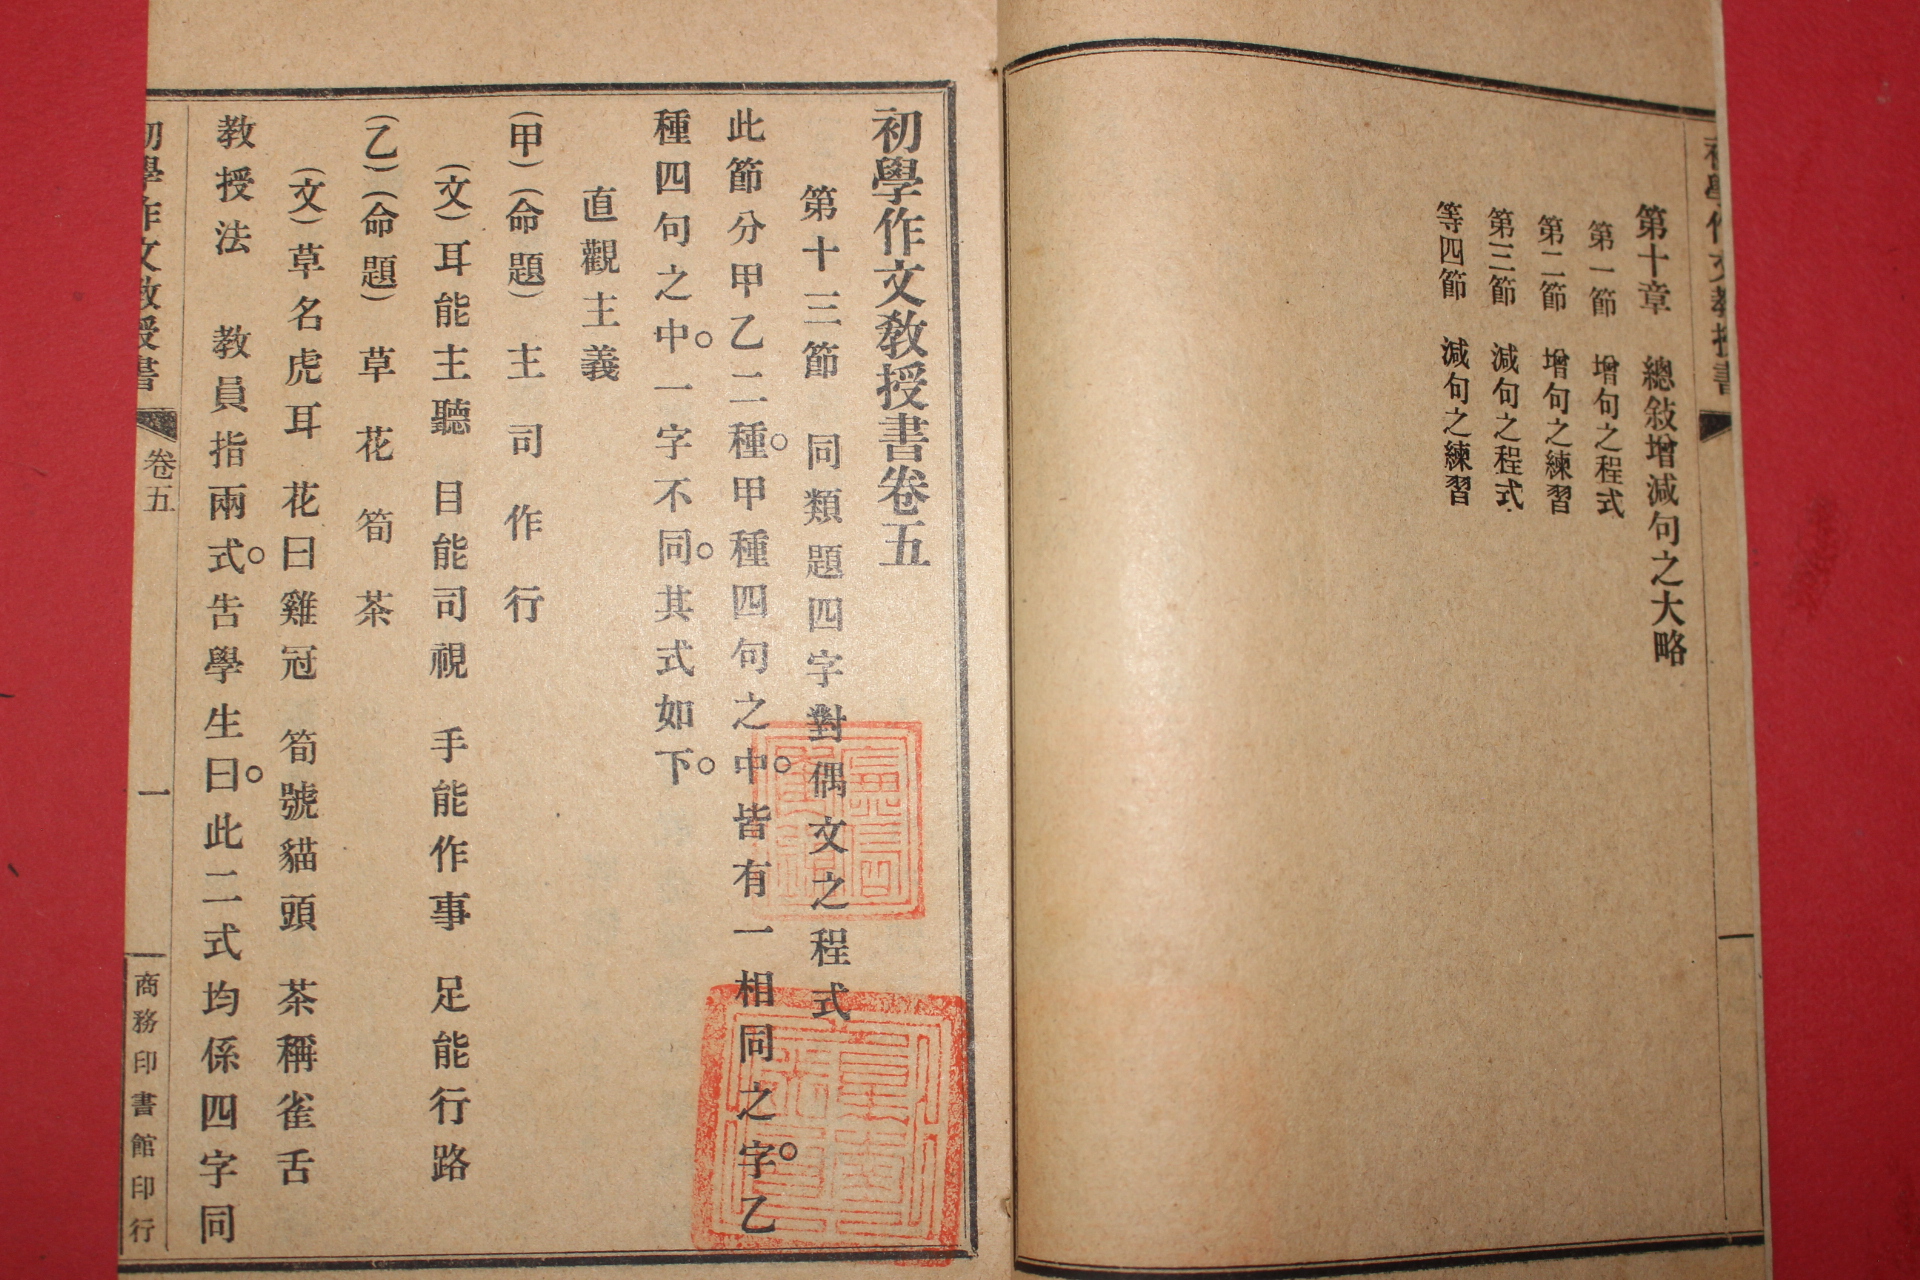 初學作文教授書
第十章　總敍增減句之大略
第一節　增句之程式
第二節　增句之練習
第三節　減句之程式
等四節　減句之練習
初學作文敎授書卷五
第十三節　同類題四字對偶文之程式
此節分甲乙二種。甲種四句之中。皆有一相同之字。乙
種四句之中。一字不同。其式如下。
直觀主義
(甲)(命題)主　司　作　行
(文)耳能主聽　目能司視　手能作事　足能行路
(乙)(命題)草　花　筍　茶
(文)草名虎耳　花曰雞冠　筍號貓頭　茶稱雀舌
教授法　教員指兩式。告學生曰。此二式均係四字同
初學作文教授書　卷五　一　商務印書館印行